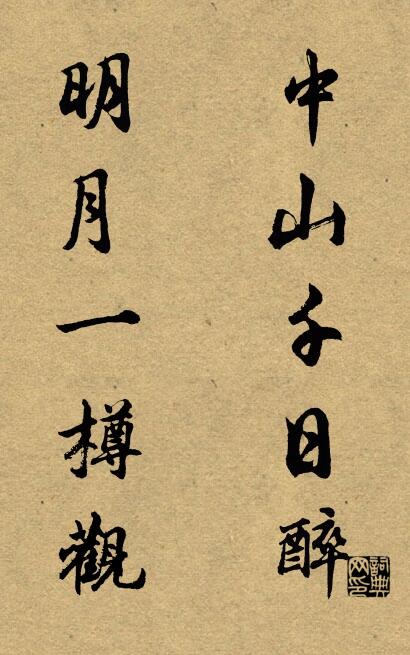 中山千日醉
明月一樽觀
詞典網印